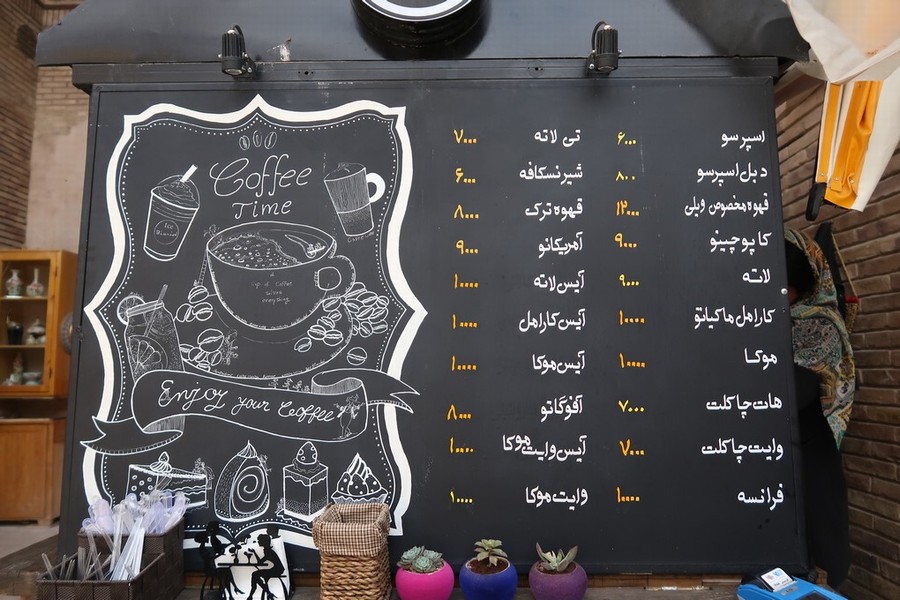 Coffee
Time
Ice
Cup of Coffee
Solves
everything
Enjoy your Coffee
اسپرسو ۶۰۰۰
دبل اسپرسو ۸۰۰۰
قهوه مخصوص ویلی ۱۲۰۰۰
کاپوچینو ۹۰۰۰
لاته ۹۰۰۰
کارامل ماکیاتو ۱۰۰۰۰
موکا ۱۰۰۰۰
هات چاکلت ۷۰۰۰
وایت چاکلت ۷۰۰۰
فرانسه ۱۰۰۰۰
تی لاته ۷۰۰۰
شیر نسکافه ۶۰۰۰
قهوه ترک ۸۰۰۰
آمریکانو ۹۰۰۰
آیس لاته ۱۰۰۰۰
آیس کارامل ۱۰۰۰۰
آیس موکا ۱۰۰۰۰
آفوگاتو ۸۰۰۰
آیس وایت موکا ۱۰۰۰۰
وایت موکا ۱۰۰۰۰